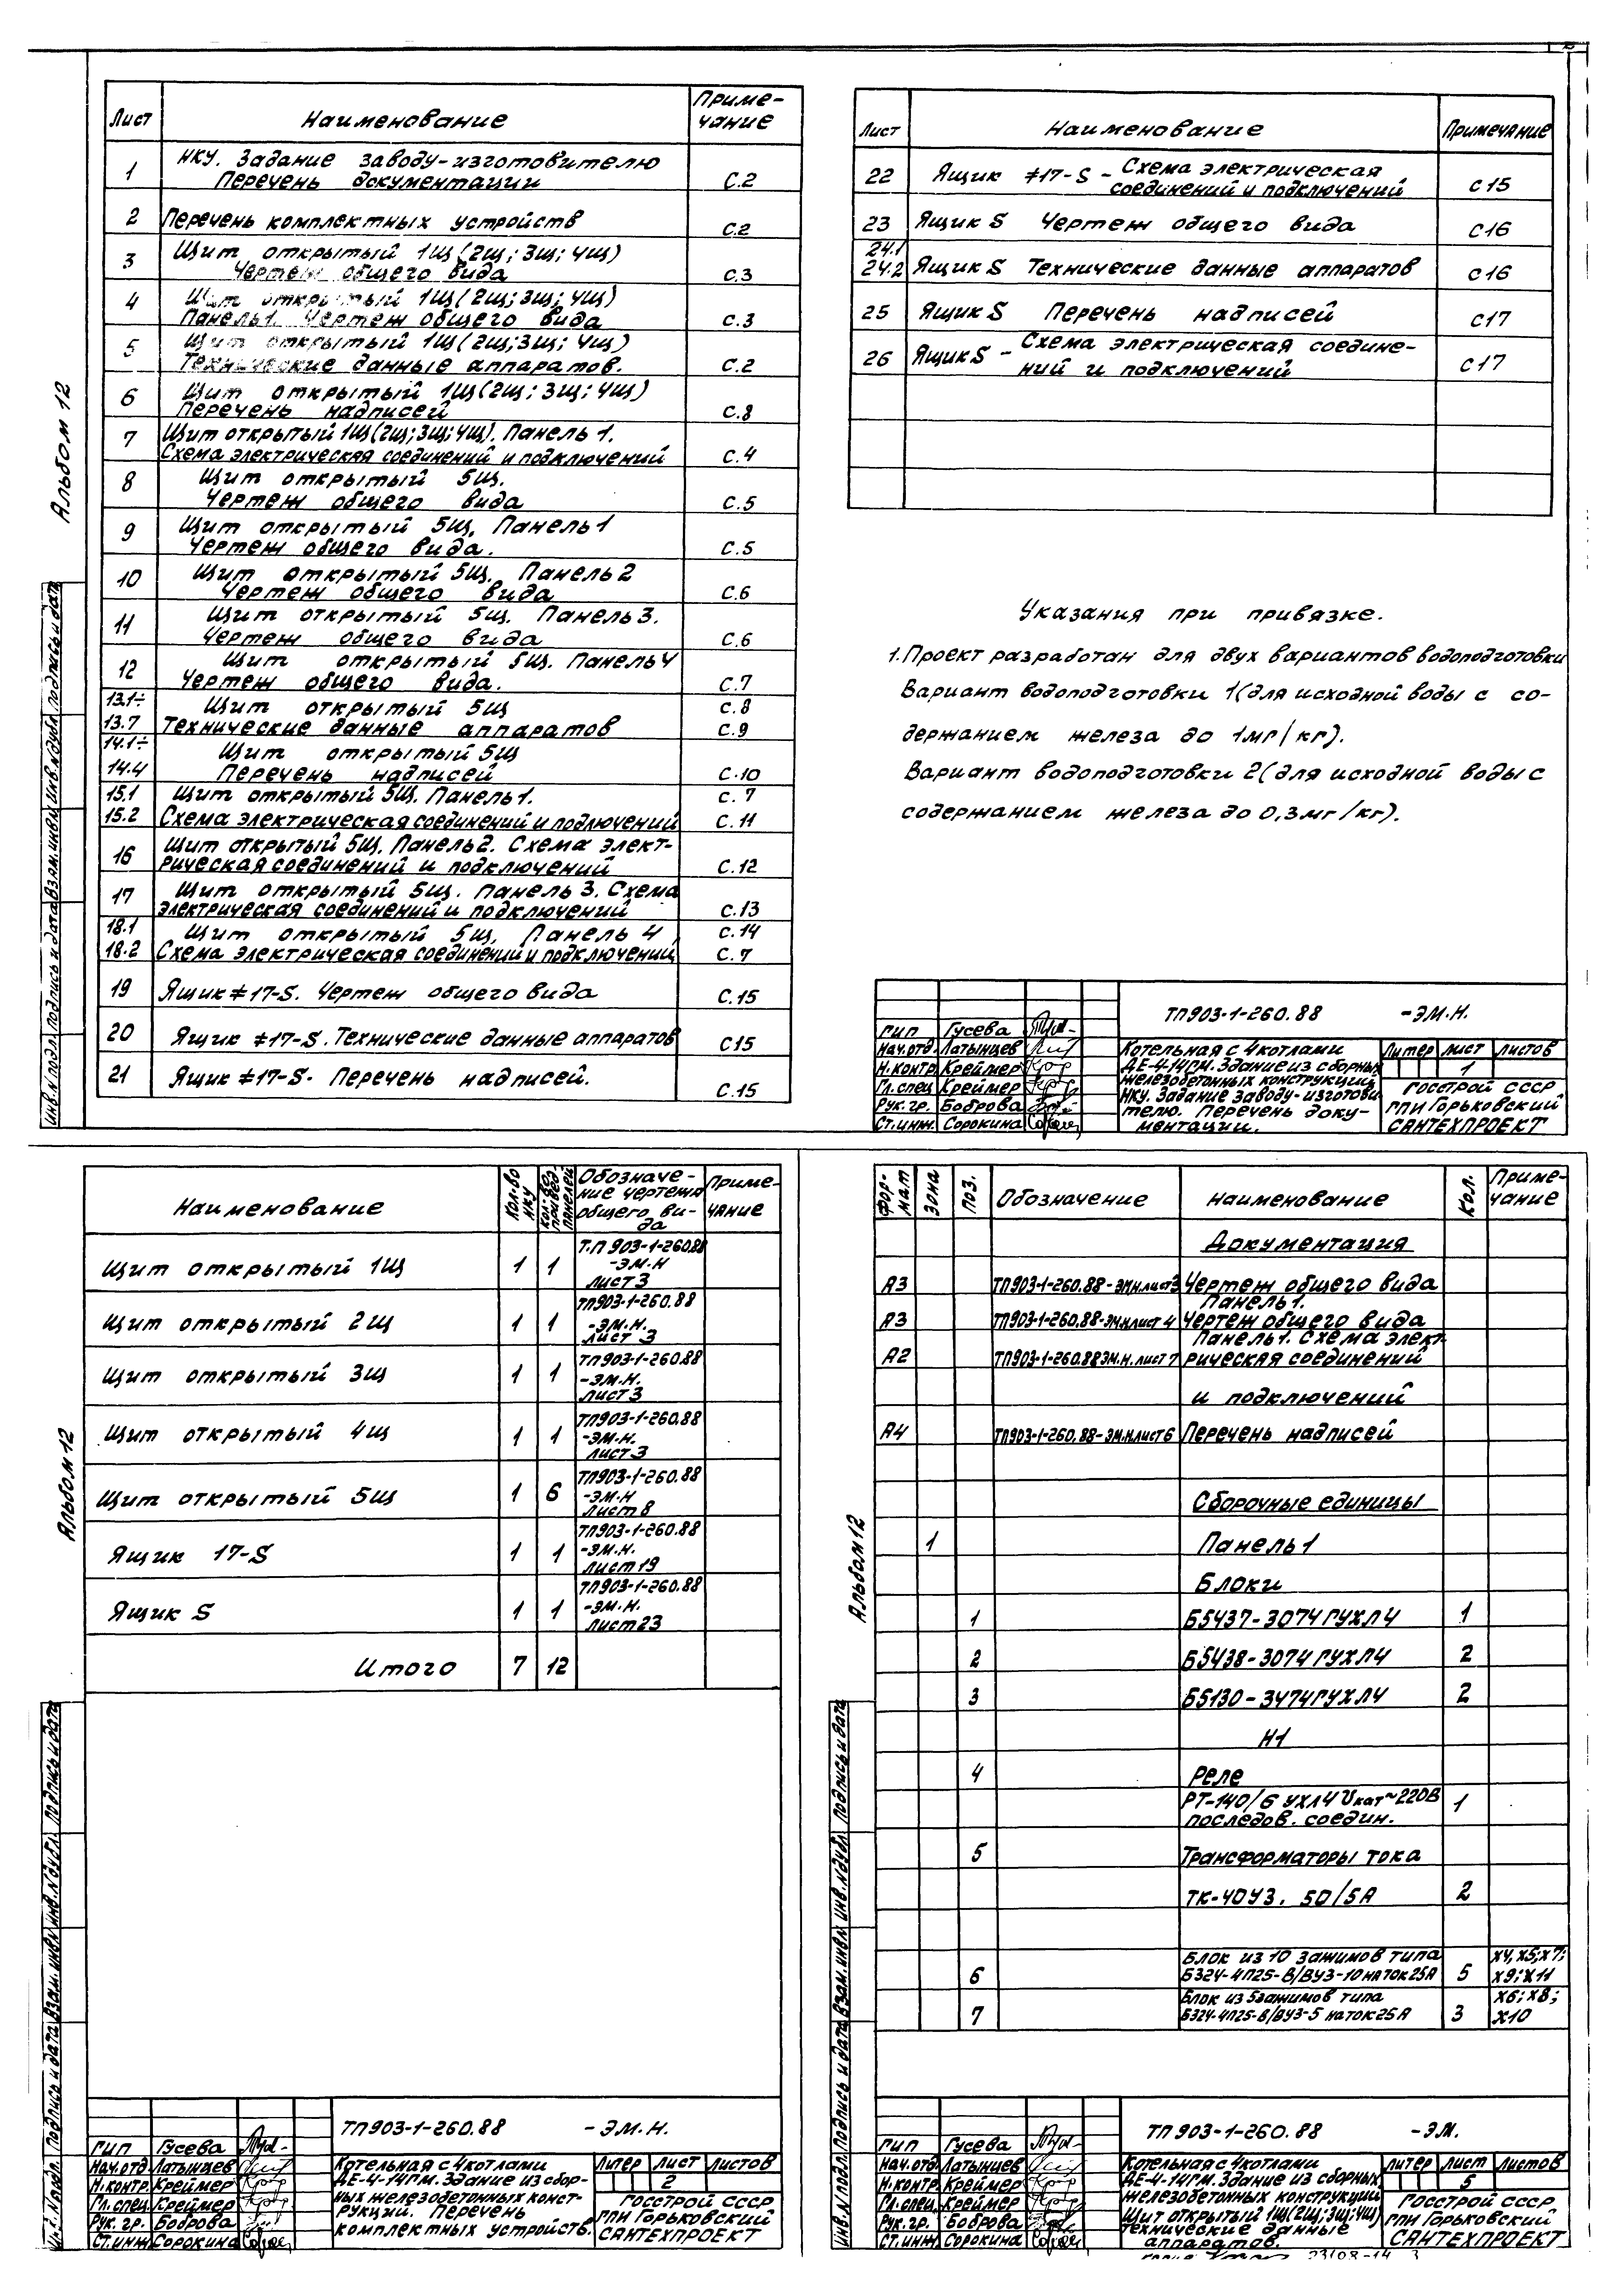 Альбом 12
Лист Наименование Приме-
чание
1 НКУ. Задание заводу-изготовителю
Перечень документации С.2
2 Перечень комплектных устройств С.2
3 Щит открытый 1Щ(2Щ; 3Щ; 4Щ)
Чертеж общего вида С.3
4 Щит открытый 1Щ(2Щ; 3Щ; 4Щ)
Панель 1. Чертеж общего вида С.3
5 Щит открытый 1Щ(2Щ; 3Щ; 4Щ)
Технические данные аппаратов. С.2
6 Щит открытый 1Щ(2Щ; 3Щ; 4Щ)
Перечень надписей С.8
7 Щит открытый 1Щ(2Щ; 3Щ; 4Щ). Панель 1.
Схема электрическая соединений и подключений С.4
8 Щит открытый 5Щ.
Чертеж общего вида С.5
9 Щит открытый 5Щ, Панель 1
Чертеж общего вида. С.5
10 Щит открытый 5Щ, Панель 2
Чертеж общего вида С.6
11 Щит открытый 5Щ. Панель 3.
Чертеж общего вида С.6
12 Щит открытый 5Щ. Панель 4
Чертеж общего вида. С.7
13.1÷ Щит открытый 5Щ С.8
13.7 Технические данные аппаратов С.9
14.1÷ Щит открытый 5Щ
14.4 Перечень надписей С.10
15.1 Щит открытый 5Щ. Панель 1. С.7
15.2 Схема электрическая соединений и подлючений С.11
16 Щит открытый 5Щ, Панель 2. Схема элект-
рическая соединений и подключений С.12
17 Щит открытый 5Щ. Панель 3. Схема
электрическая соединений и подключений С.13
18.1 Щит открытый 5Щ, Панель 4 С.14
18.2 Схема электрическая соединений и подключений С.7
19 Ящик ≠17-S. Чертеж общего вида С.15
20 Ящик ≠17-S. Технические данные аппаратов С15
21 Ящик ≠17-S. Перечень надписей. С.15
Инв.N подл. Подпись и дата Взам.инв.N Инв.N дубл. Подпись и дата
Лист Наименование Примечание
22 Ящик ≠17-S - Схема электрическая
соединений и подключений С15
23 Ящик S Чертеж общего вида С16
24.1
24.2 Ящик S Технические данные аппаратов С16
25 Ящик S Перечень надписей С17
26 Ящик S - Схема электрическая соедине-
ний и подключений С17
Указания при привязке.
1. Проект разработан для двух вариантов водоподготовки
Вариант водоподготовки 1(для исходной воды с со-
держанием железа до 1мг/кг).
Вариант водоподготовки 2(для исходной воды с
содержанием железа до 0,3мг/кг).
ТП903-1-260.88 -ЭМ.Н.
ГИП Гусева
Нач.отд. Латынцев
Н.контр. Креймер
Гл.спец. Креймер
Рук.гр. Боброва
Ст.инж. Сорокина
Котельная с 4 котлами
ДЕ-4-14ГМ. Здание из сборных
железобетонных конструкций
НКУ. Задание заводу-изготови-
телю. Перечень доку-
ментации.
Литер Лист Листов
1
Госстрой СССР
ГПИ Горьковский
САНТЕХПРОЕКТ
Альбом 12
Наименование Кол-во НКУ Кол-во привед. панелей Обозначе-
ние чертежа
общего ви-
да Приме-
чание
Щит открытый 1Щ 1 1 Т.П 903-1-260.88
-ЭМ.Н
лист 3
Щит открытый 2Щ 1 1 ТП903-1-260.88
-ЭМ.Н.
лист 3
Щит открытый 3Щ 1 1 ТП903-1-260.88
-ЭМ.Н.
лист 3
Щит открытый 4Щ 1 1 ТП903-1-260.88
-ЭМ.Н.
лист 3
Щит открытый 5Щ 1 6 ТП903-1-260.88
-ЭМ.Н
лист 8
Ящик 17-S 1 1 ТП903-1-260.88
-ЭМ.Н.
лист 19
Ящик S 1 1 ТП903-1-260.88
-ЭМ.Н.
лист 23
Итого 7 12
Инв.N подл. Подпись и дата Взам.инв.N Инв.N дубл. Подпись и дата
ТП903-1-260.88 -ЭМ.Н.
ГИП Гусева
Нач.отд Латынцев
Н.контр. Креймер
Гл.спец. Креймер
Рук.гр. Боброва
Ст.инж Сорокина
Котельная с 4 котлами
ДЕ-4-14ГМ. Здание из сбор-
ных железобетонных конст-
рукций. Перечень
комплектных устройств.
Литер Лист Листов
2
Госстрой СССР
ГПИ Горьковский
САНТЕХПРОЕКТ
Альбом 12
Фор-
мат Зона Поз. Обозначение Наименование Кол. Приме-
чание
Документация
А3 ТП903-1-260.88-ЭМ.Н.лист3 Чертеж общего вида
Панель 1.
А3 ТП903-1-260.88-ЭМ.Н.лист 4 Чертеж общего вида
Панель 1. Схема элект-
А2 ТП903-1-260.88ЭМ.Н. лист 7 рическая соединений
и подключений
А4 ТП903-1-260.88-ЭМ.Н.лист 6 Перечень надписей
Сборочные единицы
1 Панель 1
Блоки
1 Б5437-3074ГУХЛ4 1
2 Б5438-3074ГУХЛ4 2
3 Б5130-3474ГУХЛ4 2
Н1
4 Реле
РТ-140/6 УХЛ4 Uкат~220В
последов. соедин. 1
5 Трансформаторы тока
ТК-40У3. 50/5А 2
Блок из 10 зажимов типа Х4, Х5; Х7;
6 Б324-4П25-В/ВУ3-10 на ток 25А 5 Х9; Х11
Блок из 5 зажимов типа Х6; Х8;
7 Б324-4П25-В/ВУ3-5 на ток 25А 3 Х10
Инв.N подл. Подпись и дата Взам.инв.N Инв.N дубл. Подпись и дата
ТП903-1-260.88 -ЭМ.
ГИП Гусева
Нач.отд Латынцев
Н.контр. Креймер
Гл.спец. Креймер
Рук.гр. Боброва
Ст.инж Сорокина
Котельная с 4 котлами
ДЕ-4-14ГМ. Здание из сборных
железобетонных конструкций
Щит открытый 1Щ(2Щ; 3Щ; 4Щ)
Технические данные
аппаратов.
Литер Лист Листов
5
Госстрой СССР
ГПИ Горьковский
САНТЕХПРОЕКТ
23108-14 3